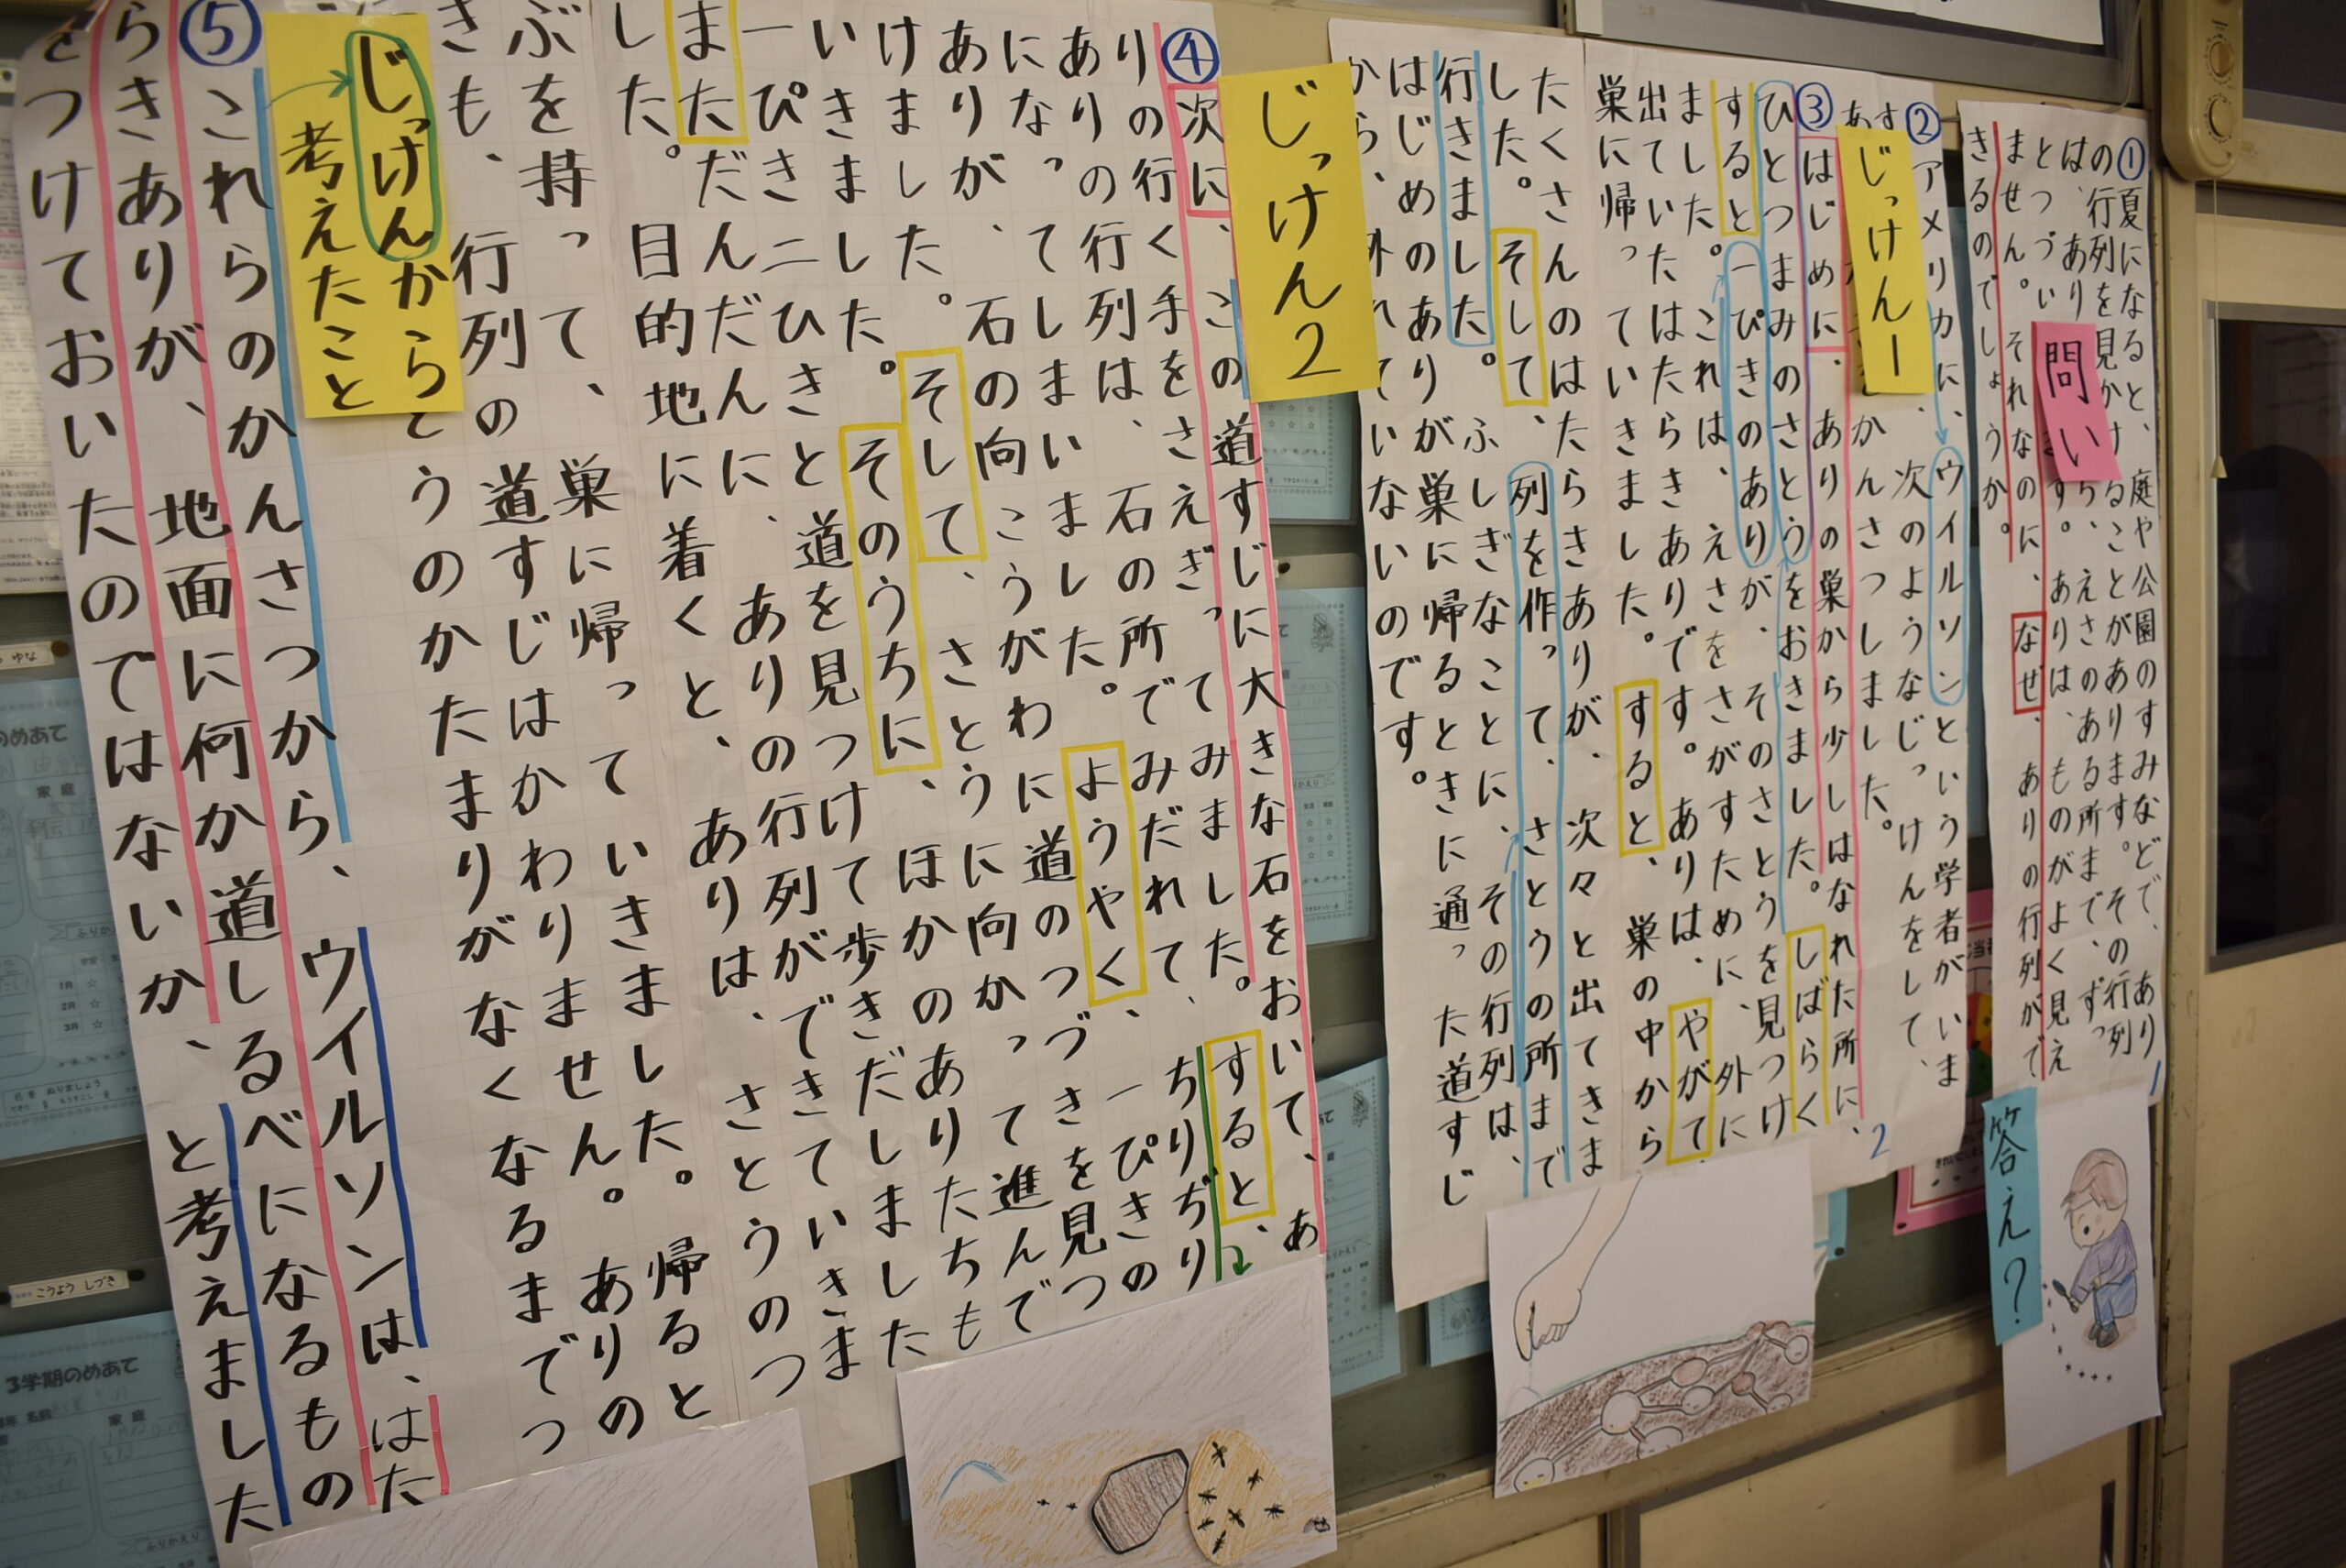 ①夏になると、庭や公園のすみなどで、あり
の行列を見かけることがあります。その行列
は、ありら、えさのある所まで、ずっ
とつづいます。ありは、ものがよく見え
ません。それなのに、なぜ、ありの行列がで
きるのでしょうか。
問い
1
答え？
②アメリカに、ウイルソンという学者がいま
す次のようなじっけんをして、
あかんさつしました。
じっけん1
③はじめに、ありの巣から少しはなれた所に、
ひとつまみのさとうをおきました。しばらく
すると、一ぴきのありが、そのさとうを見つけ
ました。これは、えさをさがすために、外に
出ていたはたらきありです。ありは、やがて
巣に帰っていきました。すると、巣の中から
たくさんのはたらきありが、次々と出てきま
した。そして、列を作って、さとうの所まで
行きました。ふしぎなことに、その行列は、
はじめのありが巣に帰るときに通った道すじ
から、外れていないのです。
2
じっけん2
④次に、この道すじに大きな石をおいて、あ
りの行く手をさえぎってみました。すると、
ありの行列は、石の所でみだれて、ちりぢり
になってしまいました。ようやく、一ぴきの
ありが、石の向こうがわに道のつづきを見つ
けました。そして、さとうに向かって進んで
いきました。そのうちに、ほかのありたちも
一ぴき二ひきと道を見つけて歩きだしました
まただんだんに、ありの行列ができていきま
した。目的地に着くと、ありは、さとうのつ
ぶを持って、巣に帰っていきました。帰ると
きも、行列の道すじはかわりません。ありの
とうのかたまりがなくなるまでつ
じっけんから
考えたこと
⑤これらのかんさつから、ウイルソンは、はた
らきありが、地面に何か道しるべになるもの
をつけておいたのではないか、と考えました
3学期のめあて
家庭
こうよう しづき
ゆな
のめあて
家庭